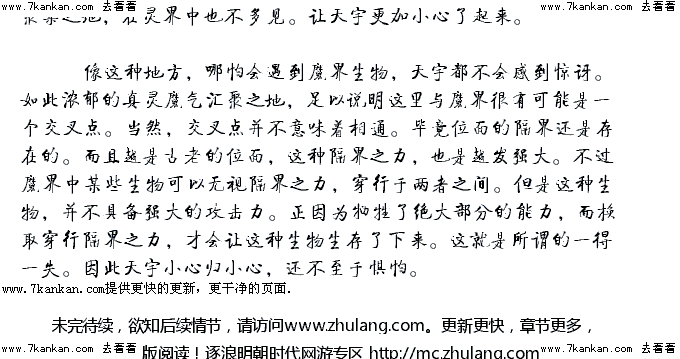 www.7kankan.com 去看看 www.7kankan.com 去看看 www.7kankan.com 去看看
聚集之地，在灵界中也不多见。让天宇更加小心了起来。
像这种地方，哪怕会遇到魔界生物，天宇都不会感到惊讶。
如此浓郁的真灵魔气汇聚之地，足以说明这里与魔界很有可能是一
个交叉点。当然，交叉点并不意味着相通。毕竟位面的隔界还是存
在的。而且越是古老的位面，这种隔界之力，也是越发强大。不过
魔界中某些生物可以无视隔界之力，穿行于两者之间。但是这种生
物，并不具备强大的攻击力。正因为牺牲了绝大部分的能力，而换
取穿行隔界之力，才会让这种生物生存了下来。这就是所谓的一得
一失。因此天宇小心归小心，还不至于惧怕。
www.7kankan.com提供更快的更新，更干净的页面.
未完待续，欲知后续情节，请访问www.zhulang.com。更新更快，章节更多，
www.7kankan.com 去看看 版阅读！逐浪明朝时代网游专区 http://mc.zhulang.com www.7kankan.com 去看看